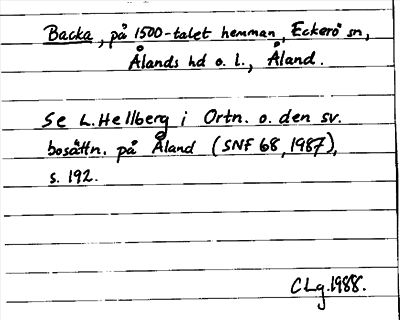 Backa, på 1500-talet hemman, Eckerö sn,
Ålands hd o. l., Åland.
Se L. Hellberg i Ortn. o. den sv.
bosättn. på Åland (SNF 68, 1987),
s. 192.
CLg. 1988.